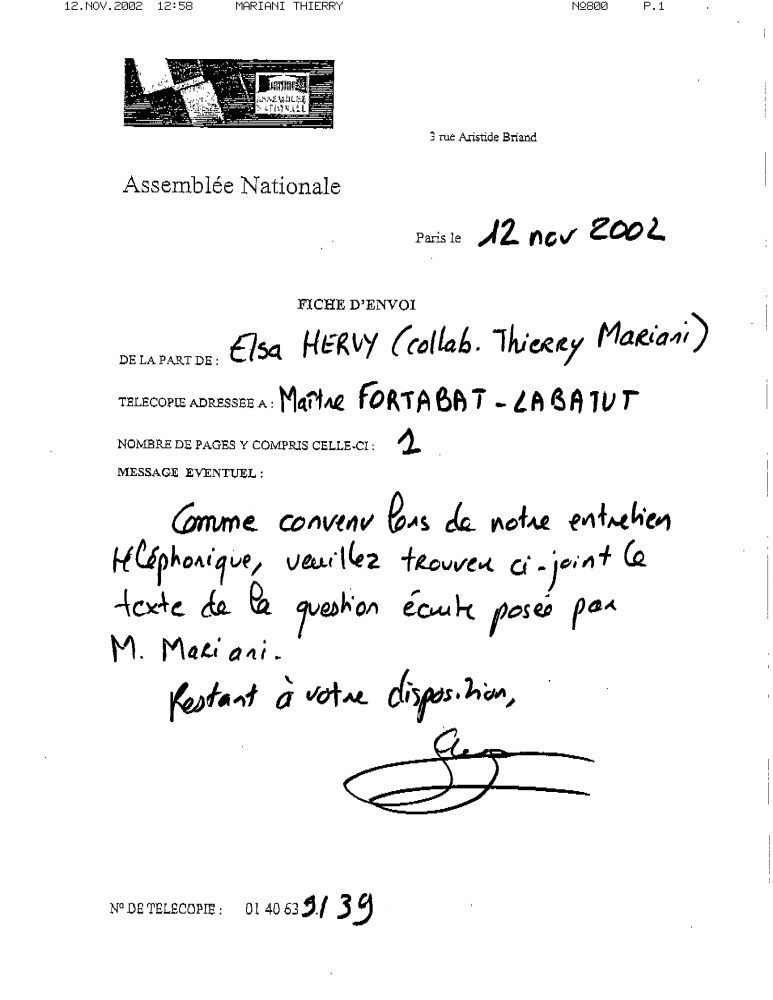 12.NOV.2002 12:58 MARIANI THIERRY Nº800 P.1
ASSEMBLÉE
NATIONALE
3 rue Aristide Briand
Assemblée Nationale
Paris le 12 nov 2002
FICHE D'ENVOI
DE LA PART DE : Elsa HERVY (collab. Thierry Mariani)
TELECOPIE ADRESSEE A : Maître FORTABAT - LABATUT
NOMBRE DE PAGES Y COMPRIS CELLE-CI : 1
MESSAGE EVENTUEL :
Comme convenu lors de notre entretien
téléphonique, veuillez trouver ci-joint le
texte de la question écrite posée par
M. Mariani.
Restant à votre disposition,
Nº DE TELECOPIE : 01 40 63 / 39